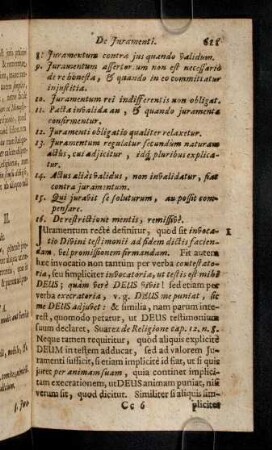 De Juramenti. 611
8. Juramentum contra jus quando validum.
9. Juramentum assertorium non est necessariò de re honesta, & quando in eo committatur injustitia.
10. Juramentum rei indifferentis non obligat.
11. Pacta invalida an, & quando juramento confirmentur.
12. Juramenti obligatio qualiter relaxetur.
13. Juramentum regulatur secundum naturam
actûs, cui adjicitur, idq́; pluribus explica-
tur.
14. Actus aliàs validus, non invalidatur, si fiat
contra juramentum.
15. Qui juravit se soluturum, an possit com-
pensare.
16. De restrictione mentis, remissivè.
Juramentum rectè definitur, quod sit invoca- 1
tio Divini testimonii ad fidem dictis facien-
dam, vel promissionem firmandam. Fit autem
hæc invocatio non tantum per verba contestato-
ria, seu simpliciter invocatoria, ut testis est mihi
DEUS; quàm verè DEUS vivit! sed etiam per
verba execratoria, v. g. DEUS me puniat, sic
me DEUS adjuvet: & similia, nam parum inter-
est, quomodo petatur, ut DEUS testimonium
suum declaret, Suarez de Religione cap. 12. n. 8.
Neque tamen requiritur, quod aliquis explicitè
DEUM in testem adducat, sed ad valorem Ju-
ramenti sufficit, si etiam implicitè id fiat, ut si quis
juret per animam suam, quia continet implici-
tam execrationem, ut DEUS animam puniat, nisi
verum sit, quod dicitur. Similiter si aliquis sim-
Cc 6 pliciter